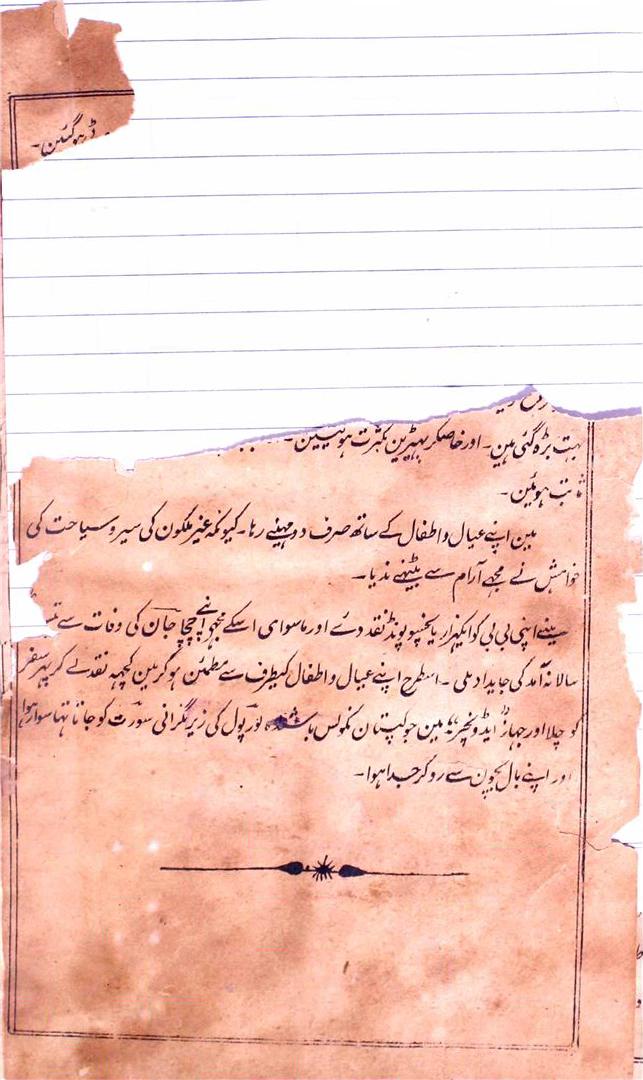 ڈ ہو گئین۔
بہت بڑہ گئی ہین۔ اور خاصکر بہیڑین بکثرت ہو
ثابت ہوئین۔
مین اپنے عیال و اطفال کے ساتھ صرف دو مہینے رہا۔ کیونکہ غیر ملکون کی سیر و سیاحت کی
خواہش نے مجھے آرام سے بیٹہنے ندیا۔
مینے اپنی بی بی کو ایکہزار پانچسو پونڈ نقد دے اور ماسوای اسکے مجہے اپنے چچا جان کی وفات سے
سالانہ آمد کی جایداد ملی۔ اسطرح اپنے عیال و اطفال کیطرف سے مطمئن ہو کر مین کچہہ نقد لے کر پہر سفر
کو چلا اور جہاز ایڈونچر مین جو کپتان نکولس لورپول کی زیر نگرانی سورت کو جاتا تہا سوار ہوا
اور اپنے بال بچون سے رو کر جدا ہوا۔